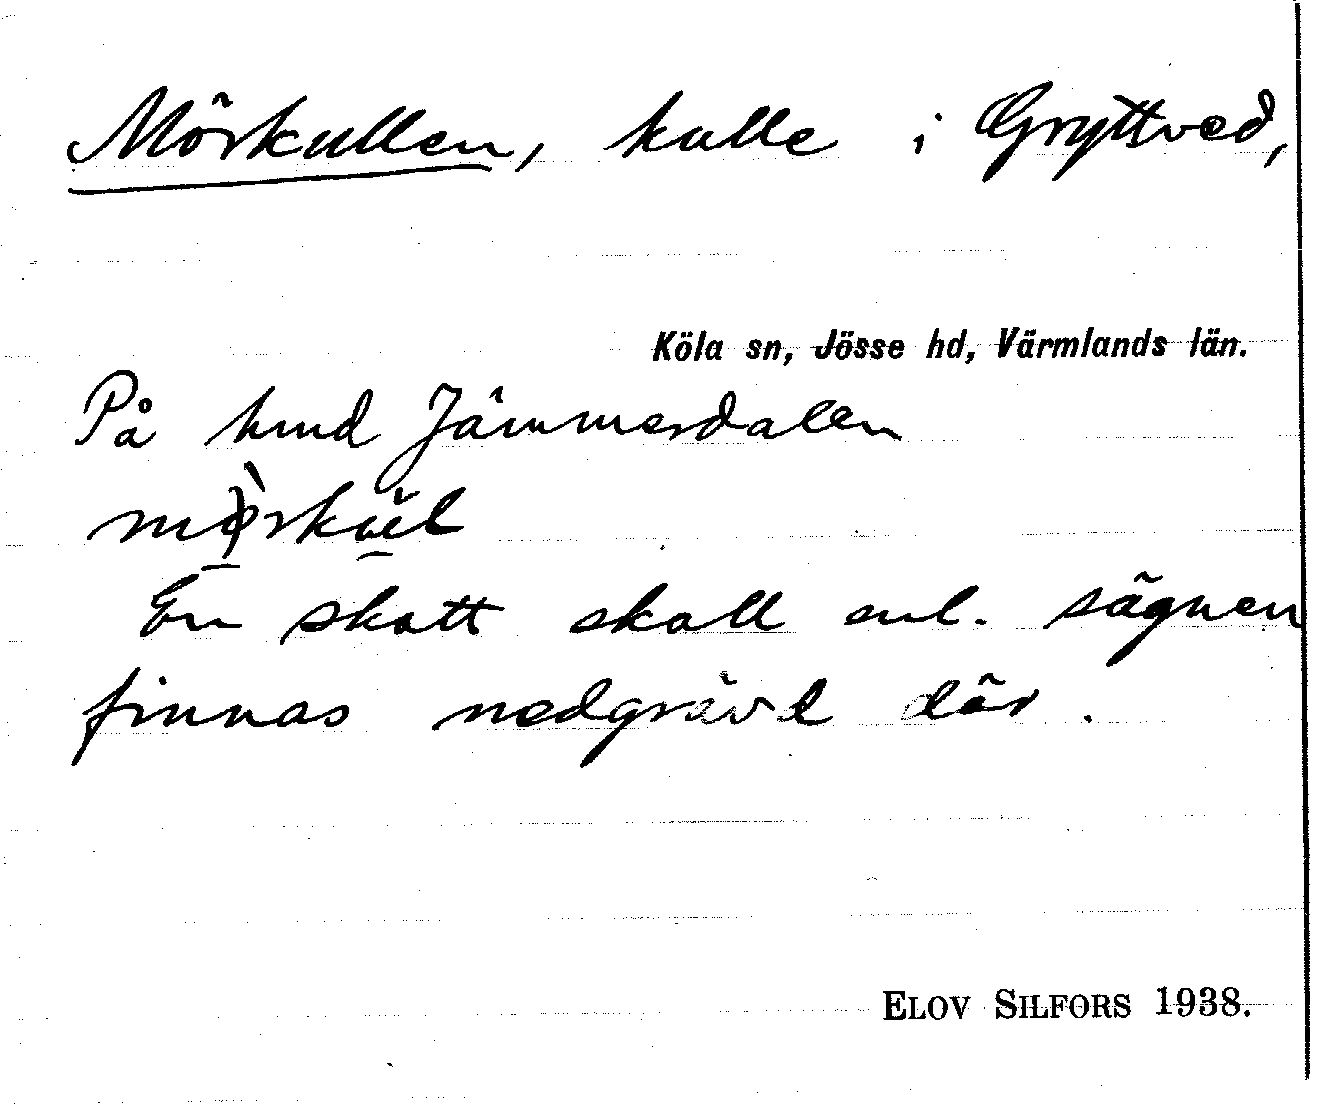 Mörkullen, kulle i Gryttved,
Köla sn, Jösse hd, Värmlands län.
På hmd Jämmerdalen
En skatt skall enl. sägnen
finnas nedgrävt där.
ELOV SILFORS 1938.